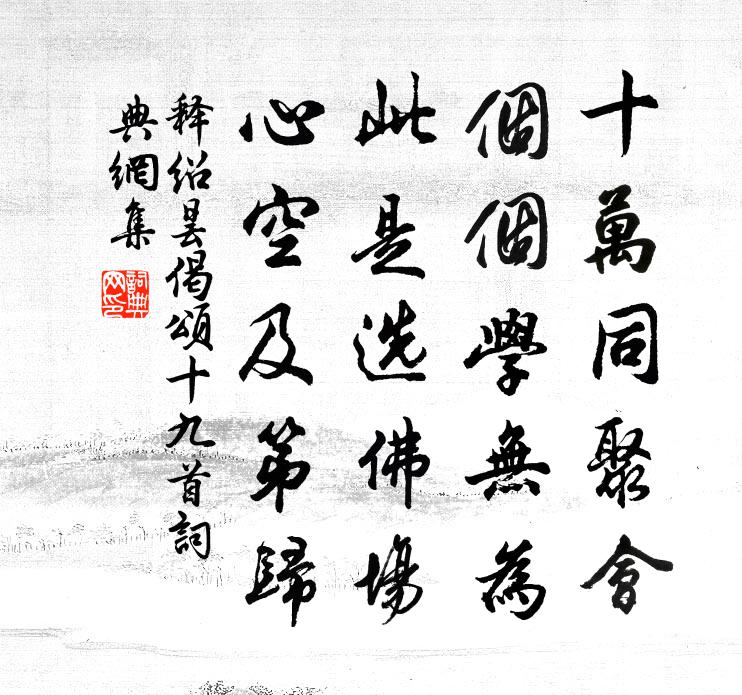 十萬同聚會
個個學無為
此是选佛場
心空及第歸
释绍昙偈頌十九首詞
典網集
詞典
网印